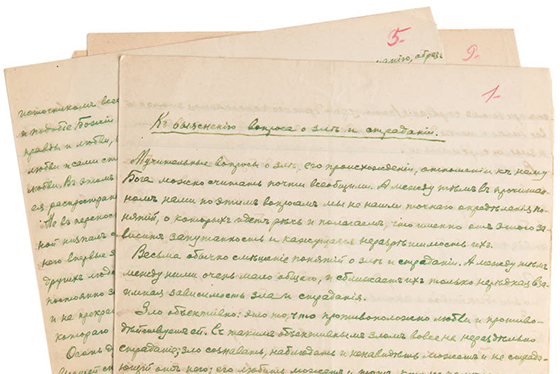 5.
9.
1.
Къ выясненію вопроса о злѣ и страданіи.
Мучительные вопросы о злѣ, его происхожденіи, отношеніи къ нему
Бога можно считать почти всеобщими. А между тѣмъ въ прочитан-
номъ нами по этимъ вопросамъ мы не нашли точнаго опредѣленія по-
нятій, о которыхъ идетъ рѣчь и полагаемъ, что именно отъ этого за-
виситъ запутанность и кажущаяся неразрѣшимость ихъ.
Весьма обычно смѣшеніе понятій о злѣ и страданіи. А между тѣмъ
между ними очень мало общаго, и сближаетъ ихъ только нерѣдкая вза-
имная зависимость зла и страданія.
Зло объективно: это то, что противоположно любви и противо-
дѣйствуетъ ей. Съ такимъ объективнымъ зломъ вовсе не нераздѣльно
страданіе; зло сознавать, наблюдать и ненавидѣть можемъ и не страда-
ющій отъ него; его любить можемъ и
источникомъ
и подобіе Божіи
правды и любви,
любви. Въ этомъ
ся распростран
но въ перено
ной
него впервые
другихъ люд
постоянно
и не прекра
котораго
Очень